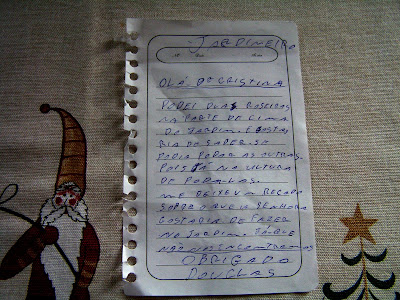 JARDINEIRO
OLÁ Dª CRISTINA
PODEI DUAS ROSEIRAS
NA PARTE DE CIMA
DO JARDIM. E GOSTA
RIA DE SABER SE
PODIA PODAR AS OUTRAS.
POIS TÁ NA ALTURA
DE PODA-LAS
ME DEIXEU RECADO
SOBRE O QUE A SENHORA
GOSTARIA DE FAZER
NO JARDIM.
NÃO NOS INCONTRAMOS
OBRIGADO
DOUGLAS